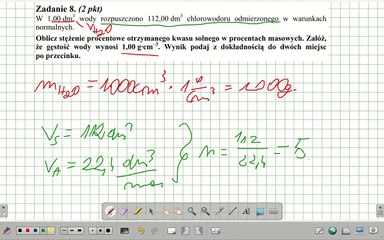 Zadanie 8. (2 pkt)
W 1,00 dm³ wody rozpuszczono 112,00 dm³ chlorowodoru odmierzonego w warunkach
normalnych.
Oblicz stężenie procentowe otrzymanego kwasu solnego w procentach masowych. Załóż,
że gęstość wody wynosi 1,00 g·cm⁻³. Wynik podaj z dokładnością do dwóch miejsc
po przecinku.
m H2O = 1000 cm³ · 1 g/cm³ = 1000g
Vs = 112 dm³
n = 112/22,4 = 5
VA = 22,4 dm³/mol